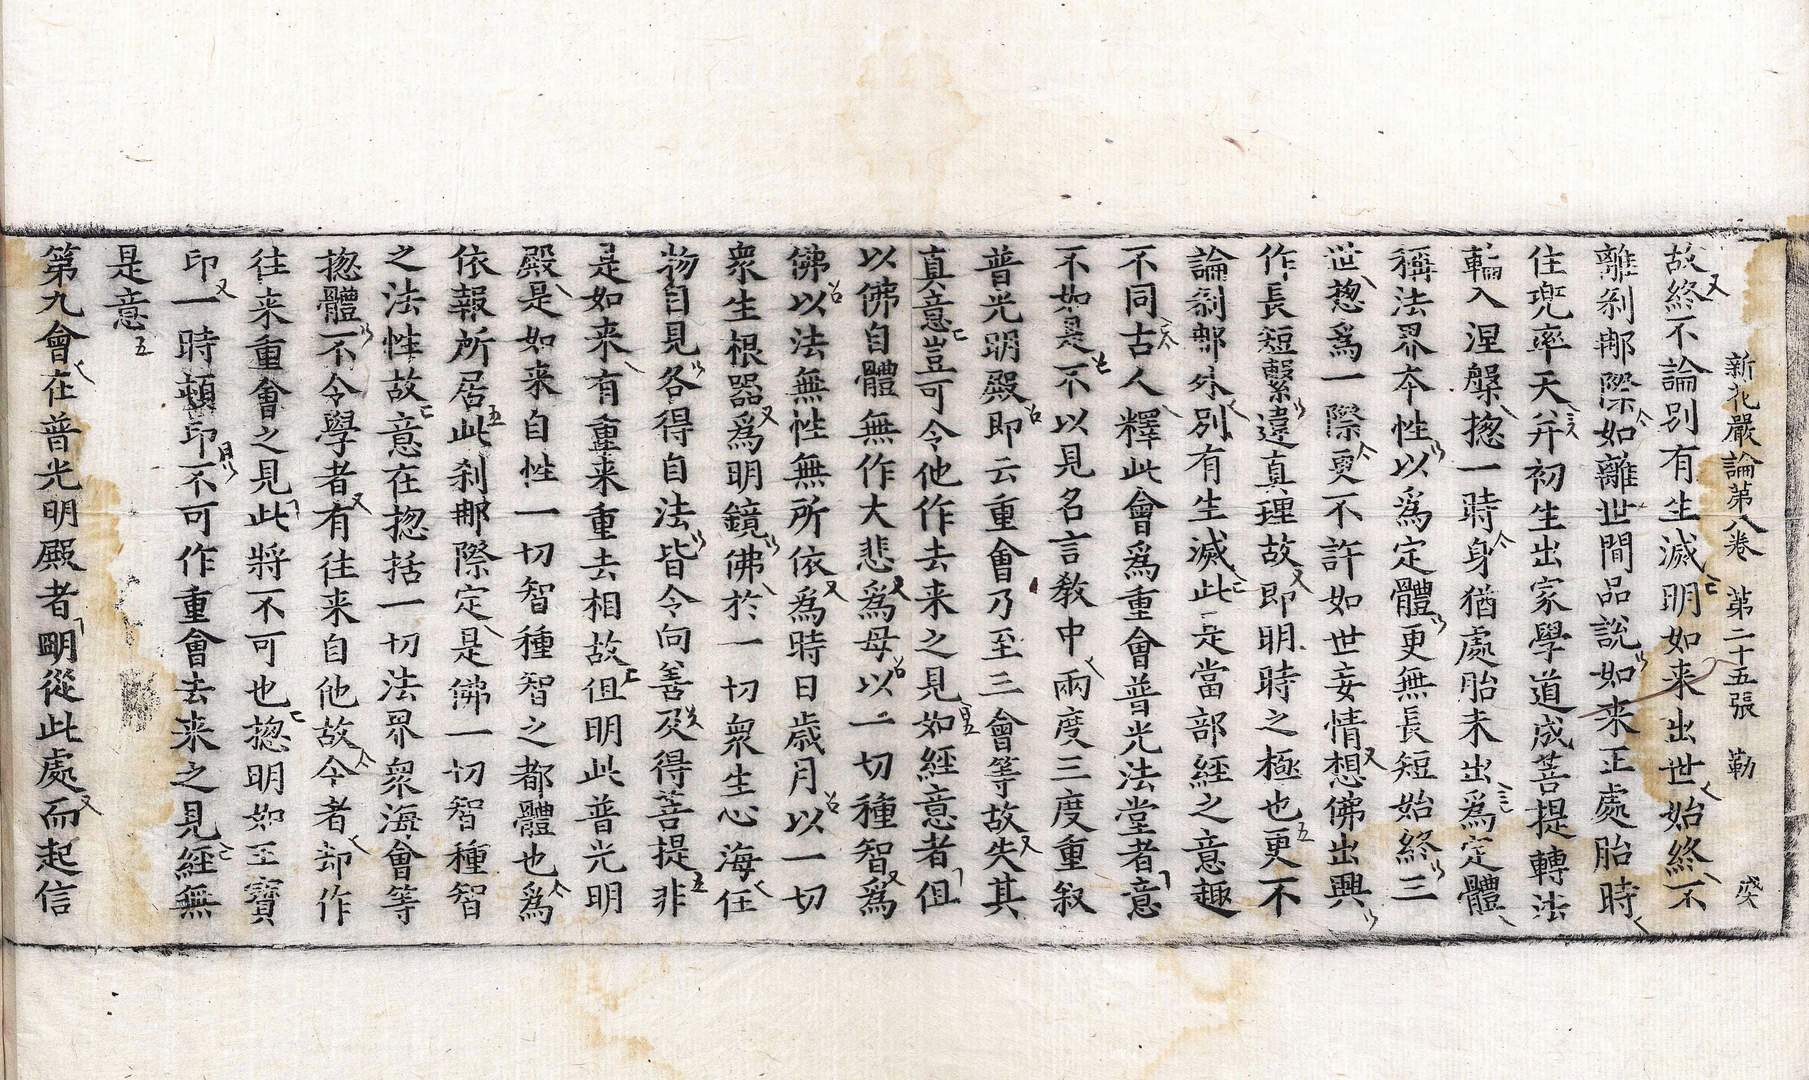 新花嚴論第八卷 第二十五張 勒 癸
故終不論別有生滅明如来出世始終不
離刹那際如離世間品說如来正處胎時
住兜率天并初生出家學道成菩提轉法
輪入涅槃揔一時身猶處胎未出爲定體
稱法界夲性以爲定體更無長短始終三
世揔爲一際更不許如世妄情想佛出興
作長短繫違真理故即明時之極也更不
論刹那外別有生滅此是當部經之意趣
不同古人釋此會爲重會普光法堂者意
不如是不以見名言教中兩度三度重叙
普光明殿即云重會乃至三會等故失其
真意豈可令他作去来之見如經意者伹
以佛自體無作大悲爲母以一切種智爲
佛以法無性無所依爲時日歲月以一切
衆生根噐爲明鏡佛於一切衆生心海任
物自見各得自法皆令向善及得菩提非
是如来有重来重去相故伹明此普光明
殿是如来自性一切智種智之都體也爲
依報所居此刹那際定是佛一切智種智
之法性故意在揔括一切法界衆海會等
揔體不令學者有往来自他故今者却作
往来重會之見此將不可也揔明如王寶
印一時頓印不可作重會去来之見經無
是意
第九會在普光明殿者明從此處而起信